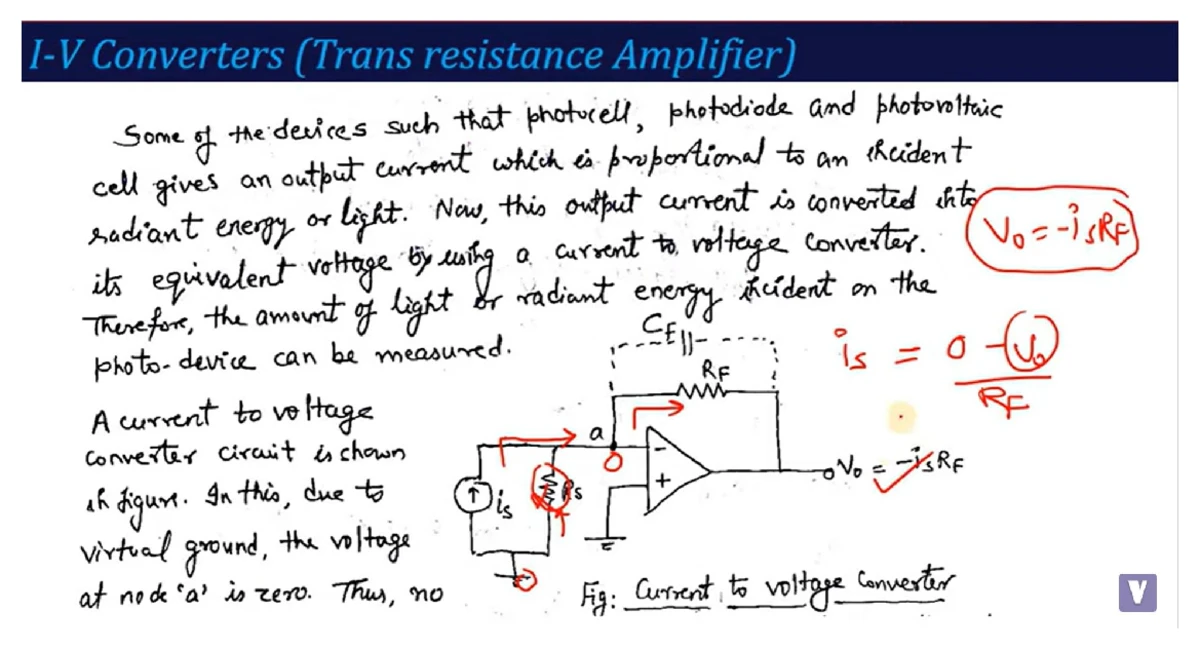 I-V Converters (Trans resistance Amplifier)
Some of the devices such that photocell, photodiode and photovoltaic
cell gives an output current which is proportional to an incident
radiant energy or light. Now, this output current is converted into
its equivalent voltage by using a current to voltage converter.
Therefore, the amount of light or radiant energy incident on the
photo-device can be measured.
V₀ = -isRF
is = 0 - V₀
RF
CF
RF
A current to voltage
converter circuit is shown
in figure. In this, due to
virtual ground, the voltage
at node 'a' is zero. Thus, no
a
0
-
+
is
Rs
V₀ = -isRF
0
Fig: Current to voltage Converter
V